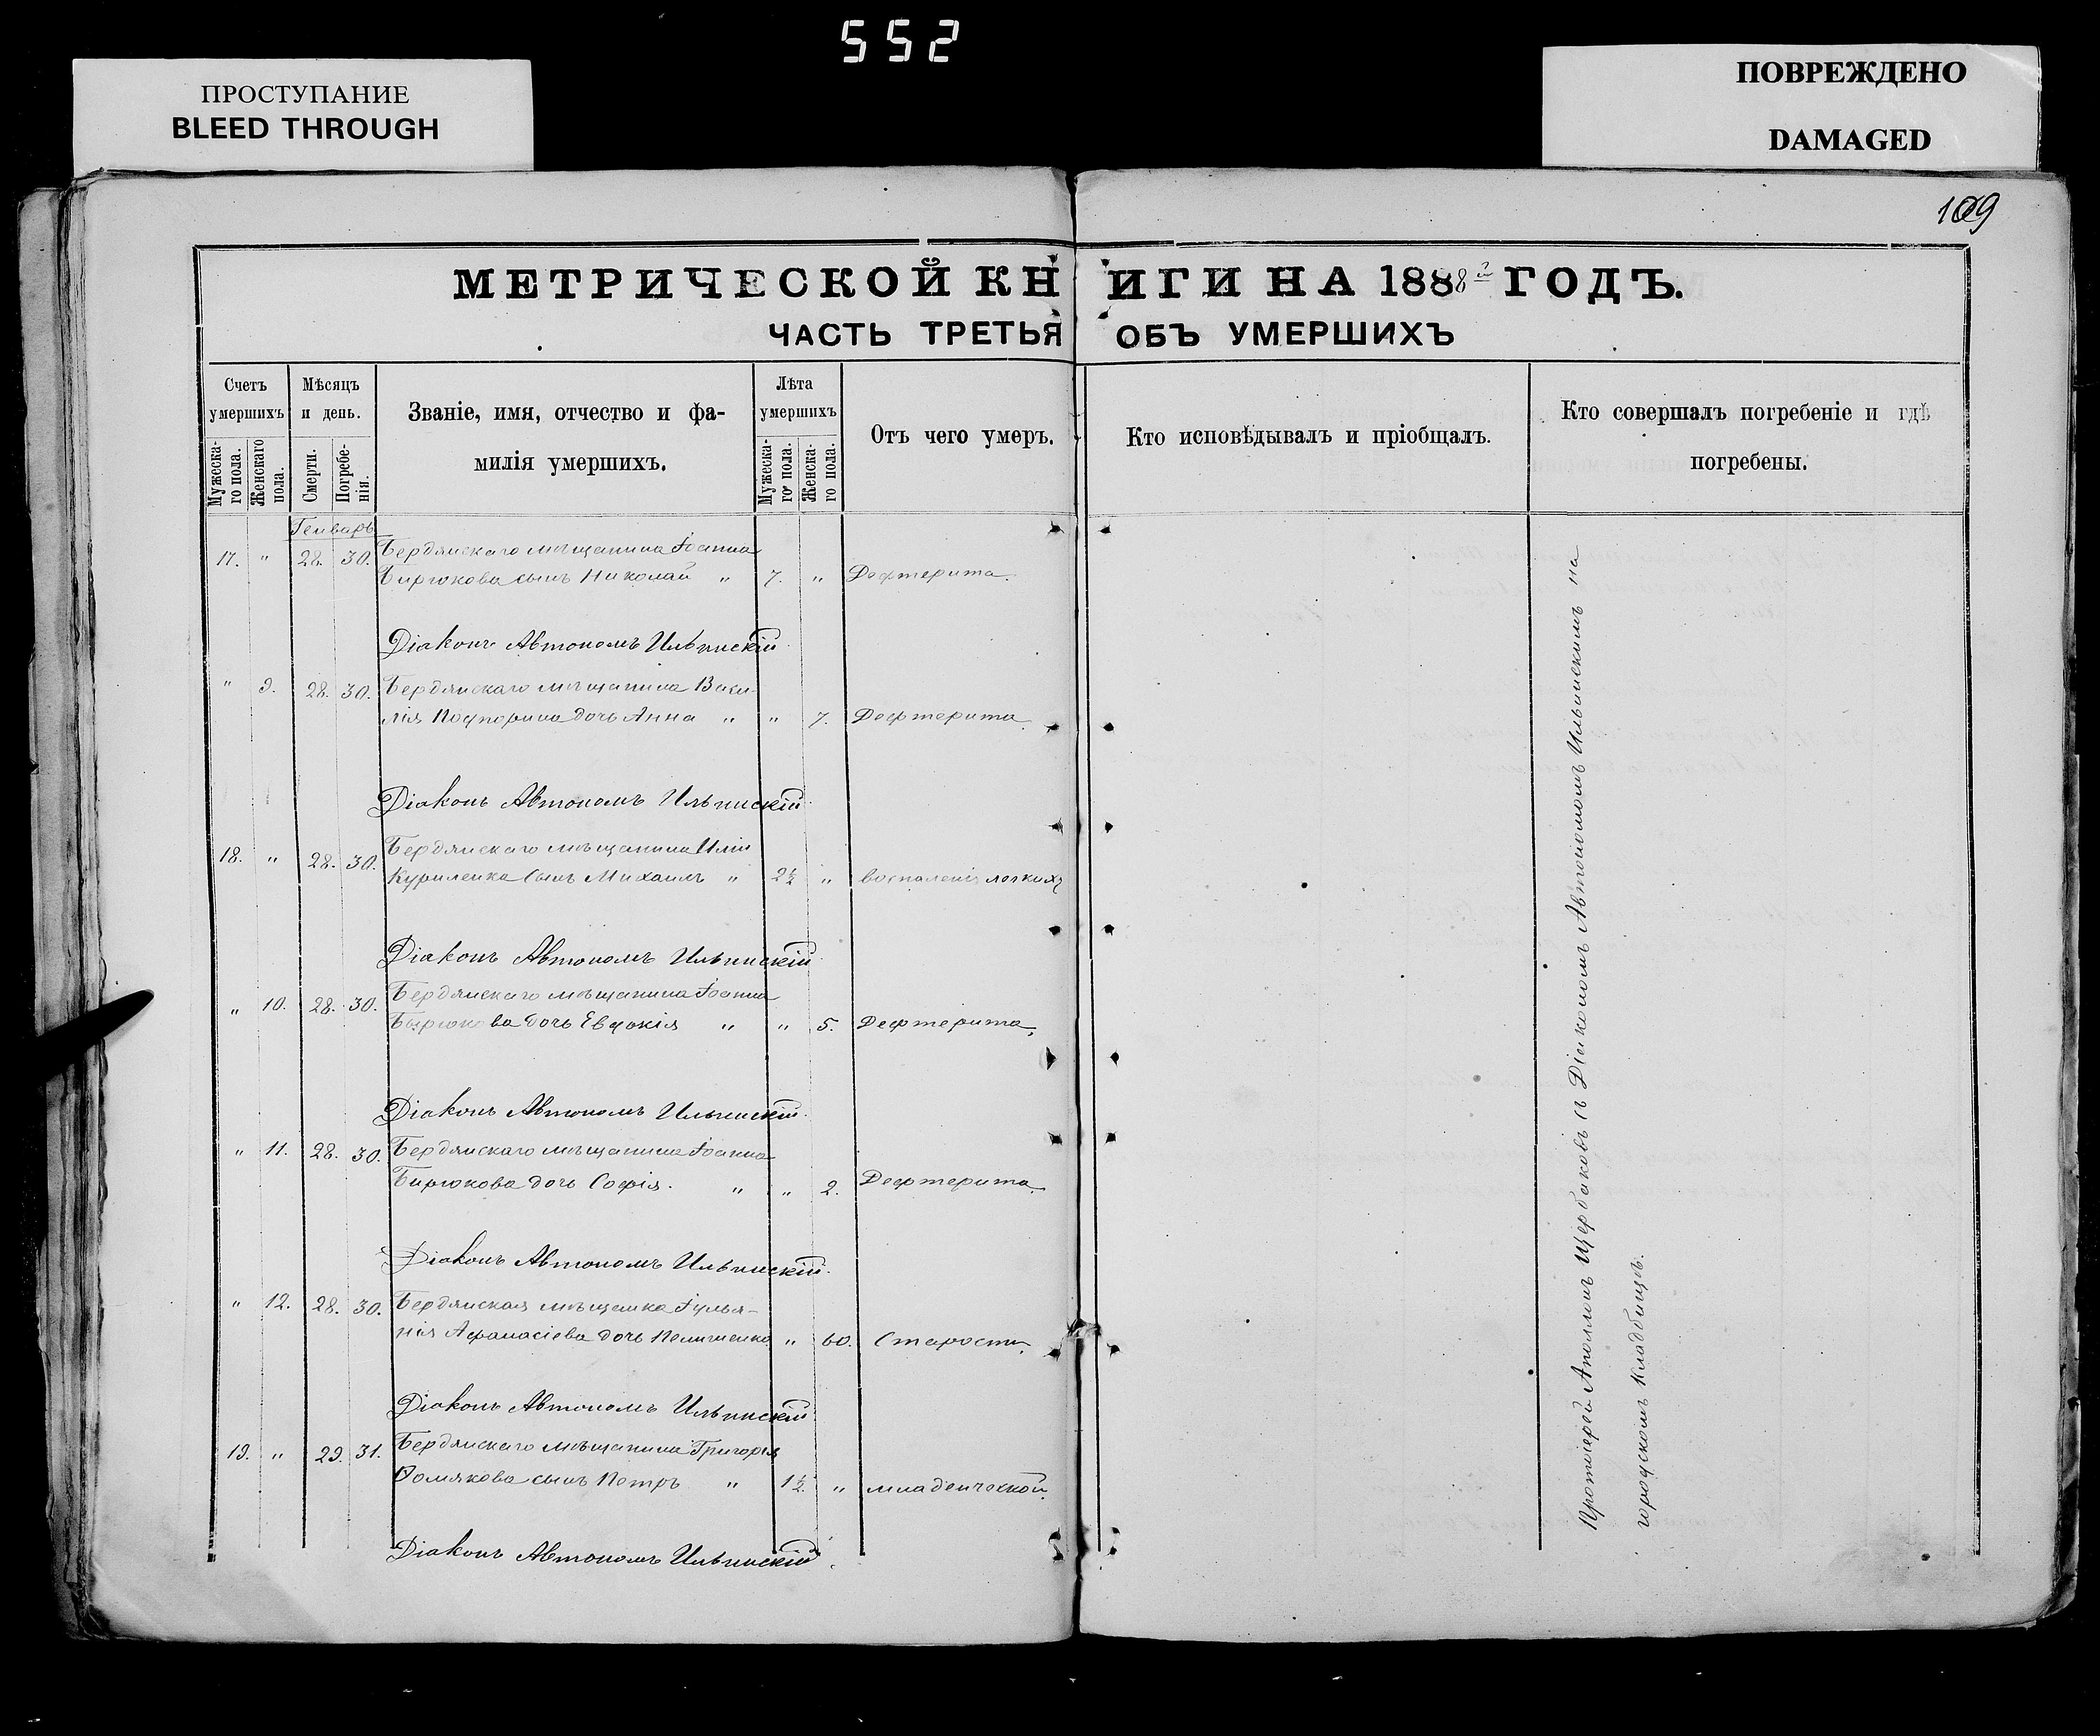 552
ПРОСТУПАНИЕ
BLEED THROUGH
ПОВРЕЖДЕНО
DAMAGED
109
МЕТРИЧЕСКОЙ КНИГИ НА 1888 ГОДЪ.
ЧАСТЬ ТРЕТЬЯ ОБЪ УМЕРШИХЪ
Счетъ умершихъ
Мужеска-го пола.
Женскаго пола.
Мѣсяцъ и день.
Смерти.
Погребе-нія.
Званіе, имя, отчество и фа-
милія умершихъ.
Лѣта умершихъ
Мужеска-го пола.
Женска-го пола.
Отъ чего умеръ.
Кто исповѣдывалъ и пріобщалъ.
Кто совершалъ погребеніе и гдѣ
погребены.
Генварь
17. " 28. 30. Бердянскаго мѣщанина Іоанна
Бирюкова сынъ Николай " 7. " Дефтерита.
Діаконъ Автономъ Ильинскій.
" 9. 28. 30. Бердянскаго мѣщанина Васи-
лія дочь Анна " " 7. Дефтерита.
Діаконъ Автономъ Ильинскій.
18. " 28. 30. Бердянскаго мѣщанина Иліи
Куриленка сынъ Михаилъ " 2½ " воспаленія легкихъ
Діаконъ Автономъ Ильинскій.
" 10. 28. 30. Бердянскаго мѣщанина Іоанна
Бирюкова дочь Евдокія " " 5. Дефтерита.
Діаконъ Автономъ Ильинскій.
" 11. 28. 30. Бердянскаго мѣщанина Іоанна
Бирюкова дочь Софія. " " 2. Дефтерита.
Діаконъ Автономъ Ильинскій.
" 12. 28. 30. Бердянская мѣщанка Іулья-
нія Афанасіева дочь " 60. Старости.
Діаконъ Автономъ Ильинскій
19. " 29. 31. Бердянскаго мѣщанина Григорія
сынъ Петръ " 1½. " младенческой.
Діаконъ Автономъ Ильинскій.
Протоіерей Аполлонъ Щербаковъ съ Діакономъ Автономомъ Ильинскимъ на
городскомъ кладбищѣ.